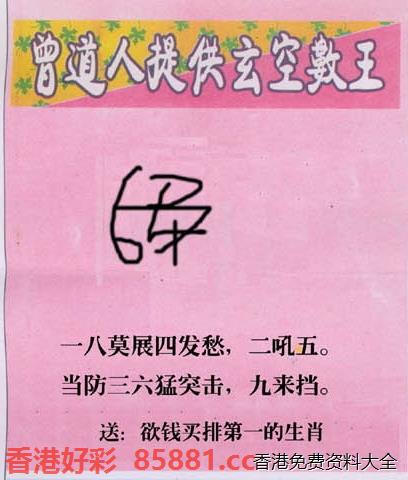 曾道人提供玄空數王
一八莫展四发愁，二吼五。
当防三六猛突击，九来挡。
送：欲钱买排第一的生肖
香港好彩 85881.cc
香港免费资料大全